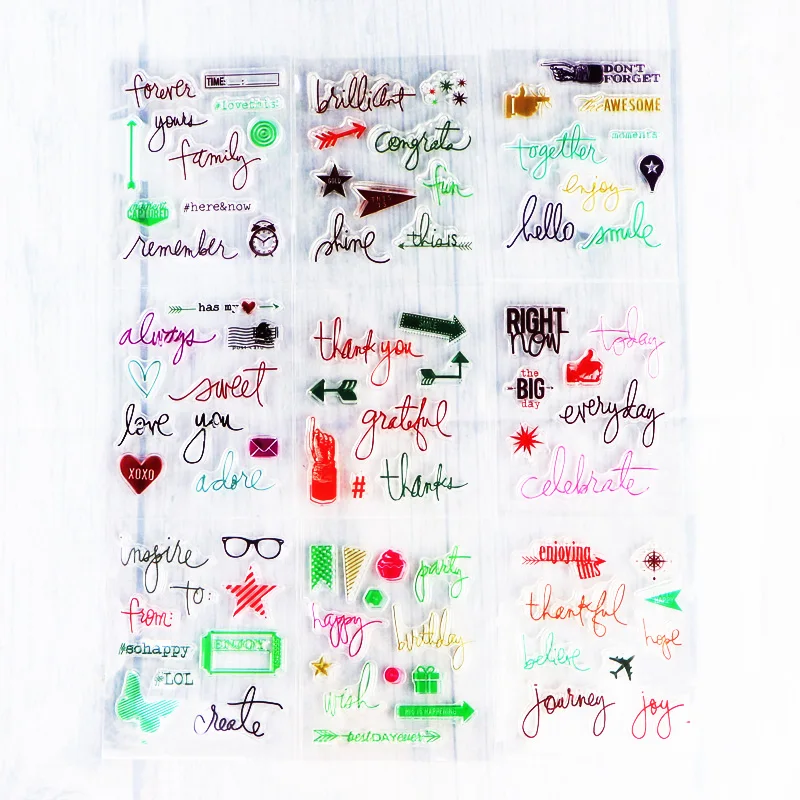 forever
TIME: :
#lovethis
yours
family
CAPTURED
#here&now
remember
brilliant
congrats
GOLD
fun
shine
this is
DON'T
FORGET
AWESOME
together
moments
enjoy
hello
smile
has my
always
sweet
love you
XOXO
adore
thank you
grateful
#
thanks
RIGHT
now
today
the
BIG
day
everyday
celebrate
inspire
to:
from:
#sohappy
ENJOY
#LOL
create
party
happy
birthday
wish
THIS IS HAPPENING
best DAY ever
enjoying
this
thankful
hope
believe
journey
joy